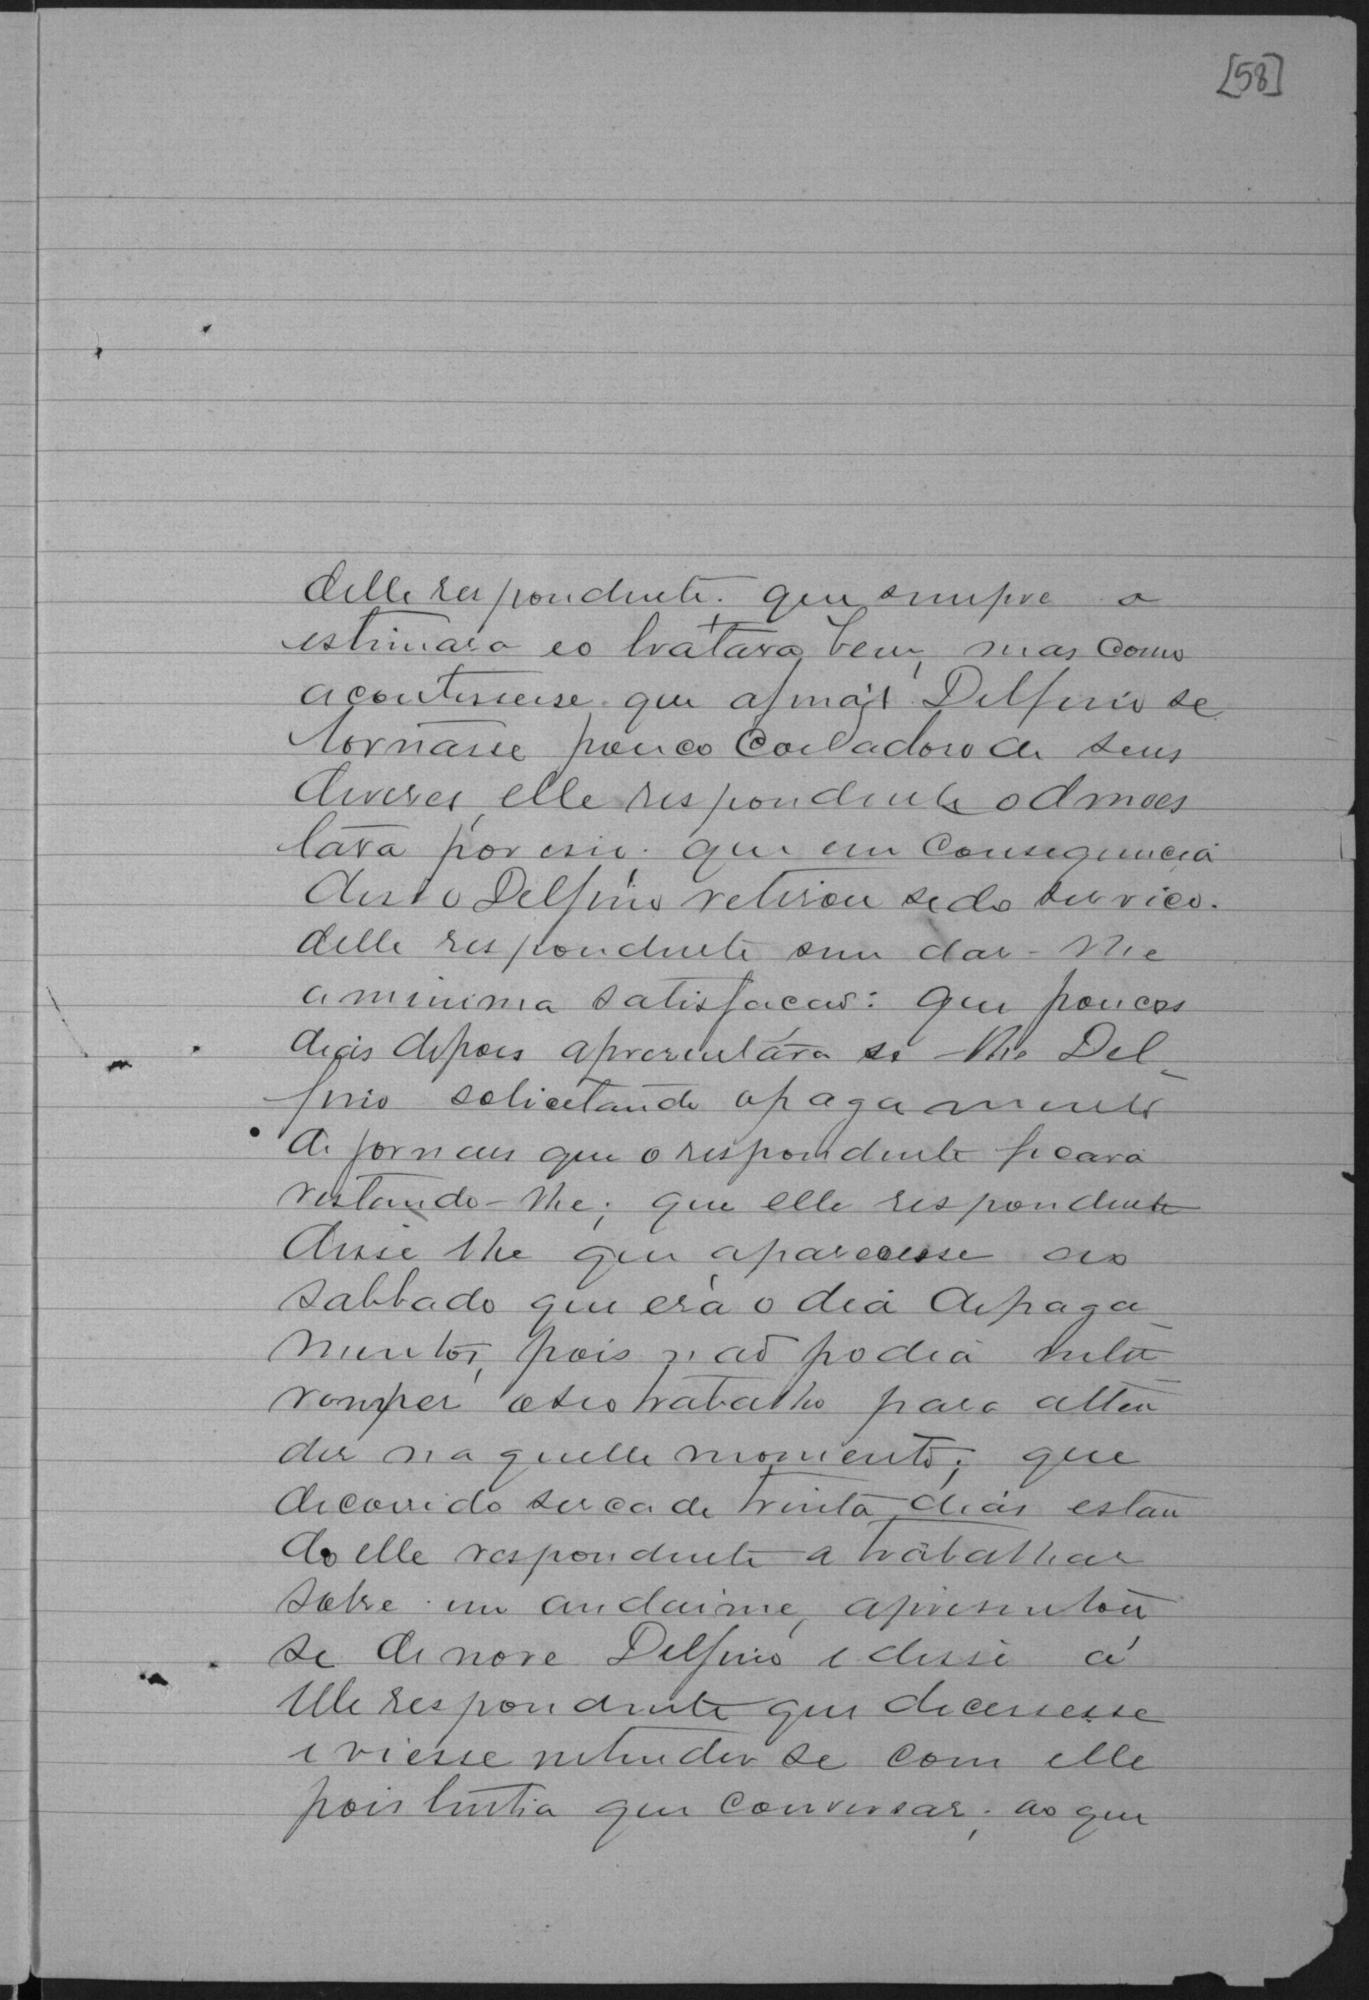 [58]
delle respondente; que sempre o
estimara e o tratara bem, mas como
acontessese que afinal Delfino se
tornasse pouco cuidadoso de seus
deveres, elle respondente o admoes
tara por isso; que em consequencia
disto Delfino retirou se do serviço
delle respondente sem dar-lhe
a minima satisfacaõ: que poucos
dias depois apresentára se lhe Del_
fino solicitando o pagamento
de jornaes que o respondente ficara
restando-lhe; que elle respondente
disse lhe que aparecesse ao
sabbado que era o dia de paga_
mentos, pois naõ podia inter
romper o seo trabalho para atten
der naquelle momento; que
decorrido serca de trinta dias estan
do elle respondente a trabalhar
sobre um andaime, apresentou
se de novo Delfino e disse á
elle respondente que decesesse
e viesse entender se com elle
pois tinha que conversar; ao que